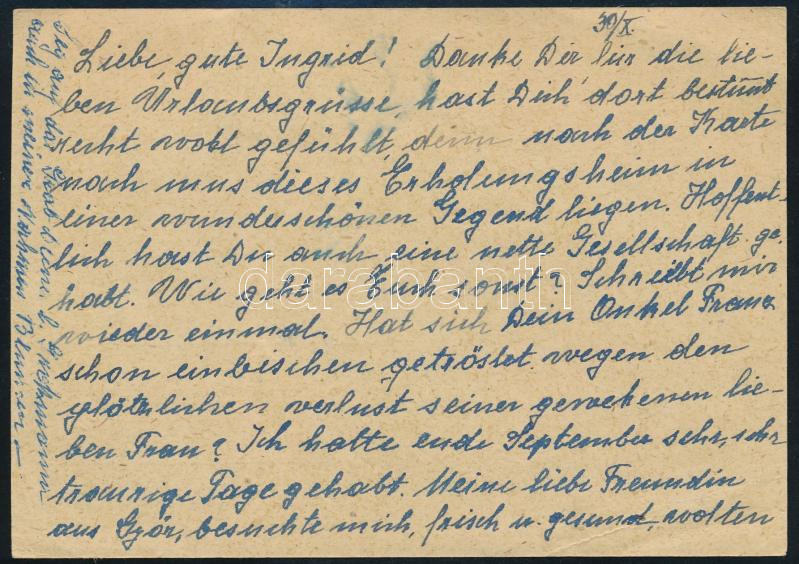 30/X.
Liebe, gute Ingrid! Danke Dir für die lie-
ben Urlaubsgrüsse, hast Dich dort bestimt
recht wohl gefühlt, denn nach der Karte
nach mus dieses Erholungsheim in
einer wunderschönen Gegend liegen. Hoffent-
lich hast Du auch eine nette Gesellschaft ge-
habt. Wie geht es Euch sonst? Schreibt mir
wieder einmal. Hat sich Dein Onkel Franz
schon einbischen getröstet wegen den
plötzlichen verlust seiner gewehenen lie-
ben Frau? Ich hatte ende September sehr, sehr
traurige Tage gehabt. Meine liebe Freundin
aus Györ, besuchte mich, frisch u. gesund, wolten
Leg auf das Grab Deiner l.
auch in meiner Nahmen Blumen!
darabanth